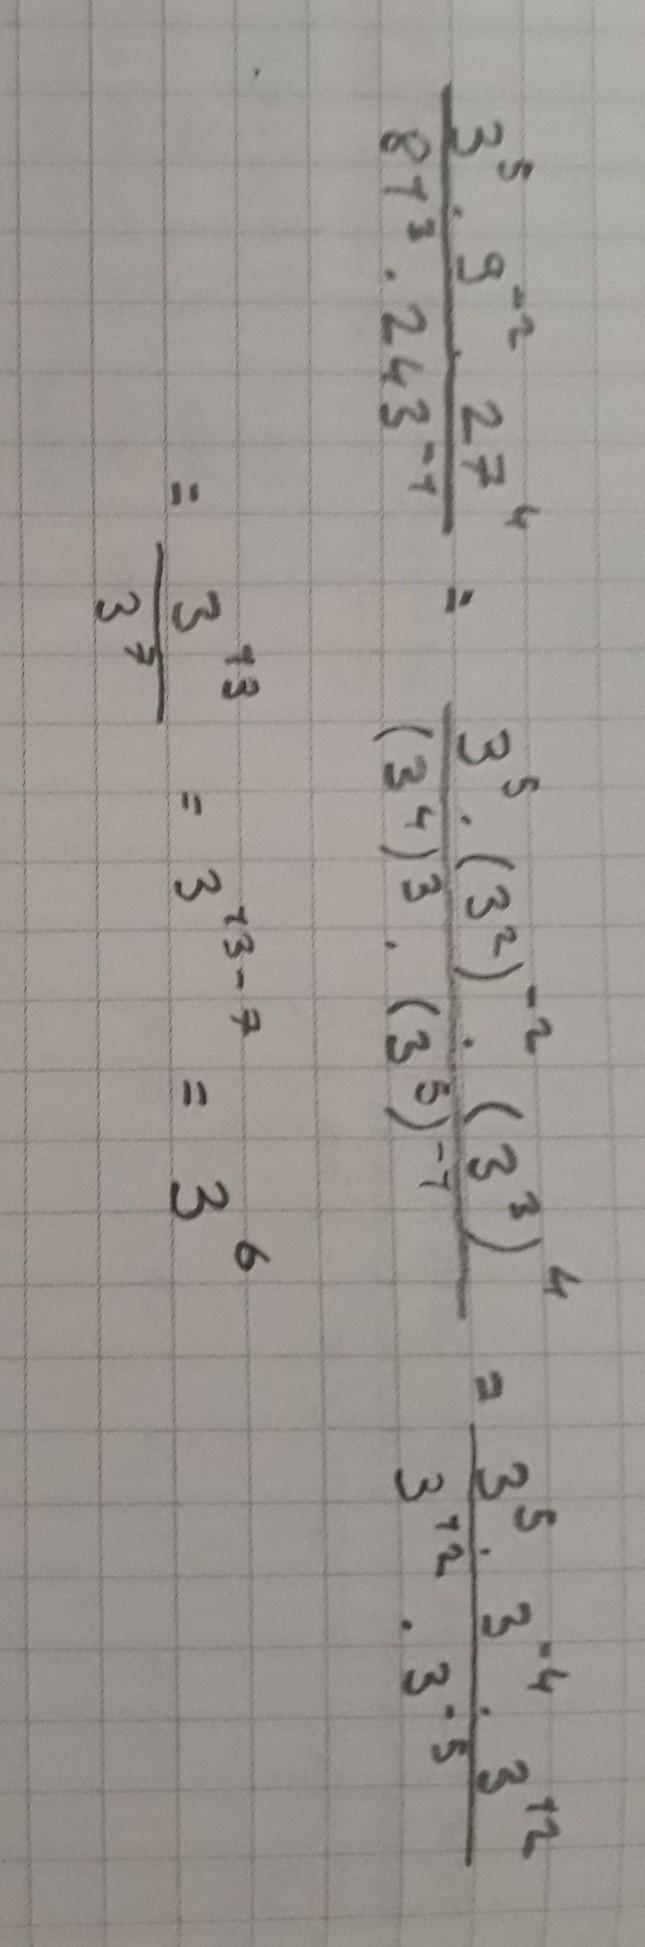 3⁵ · 9⁻² · 27⁴ / 81³ · 243⁻¹ = 3⁵ · (3²)⁻² · (3³)⁴ / (3⁴)³ · (3⁵)⁻¹ = 3⁵ · 3⁻⁴ · 3¹² / 3¹² · 3⁻⁵
= 3¹³ / 3⁷ = 3¹³⁻⁷ = 3⁶